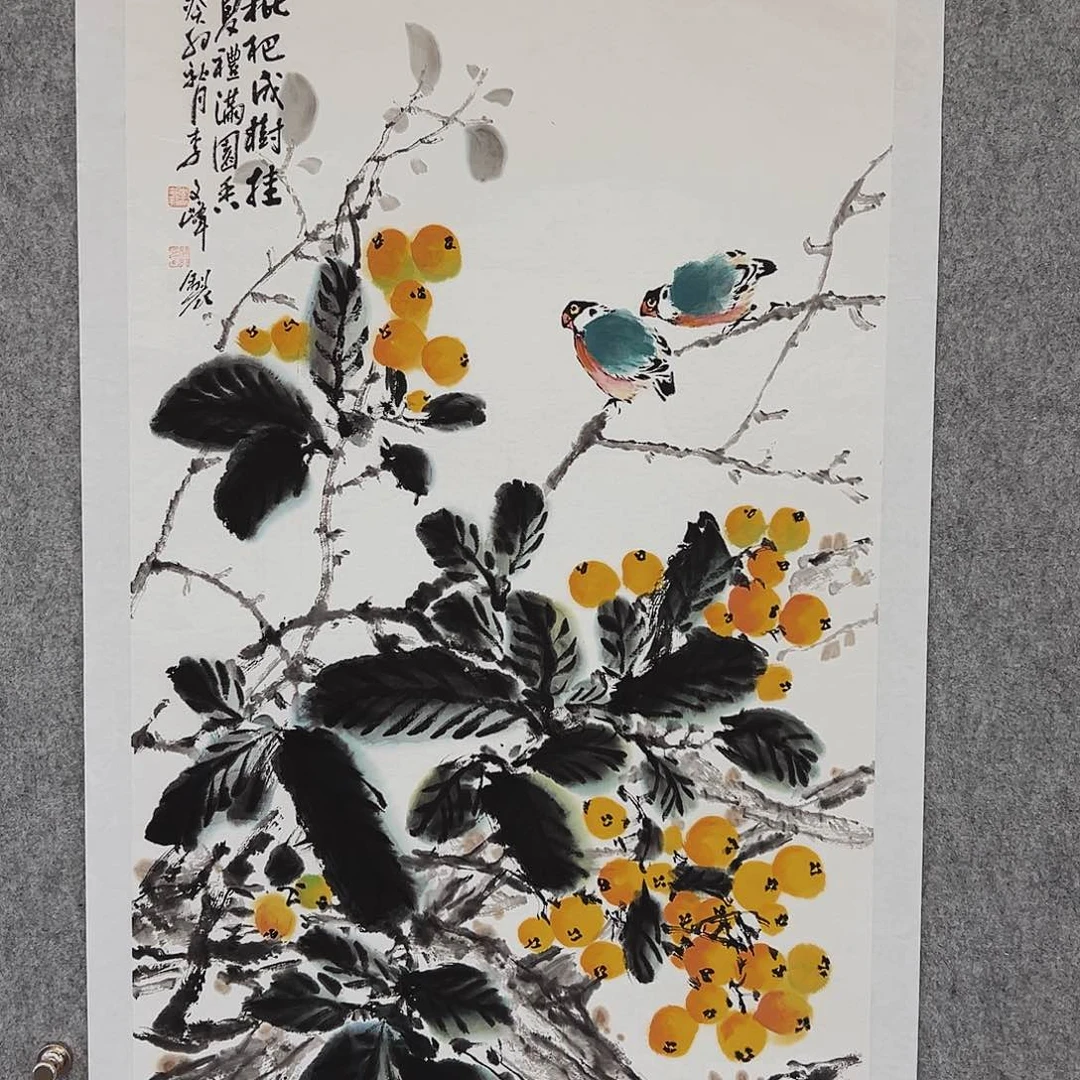 枇杷成樹挂
夏禮滿園香
癸卯秋月李文峰
製